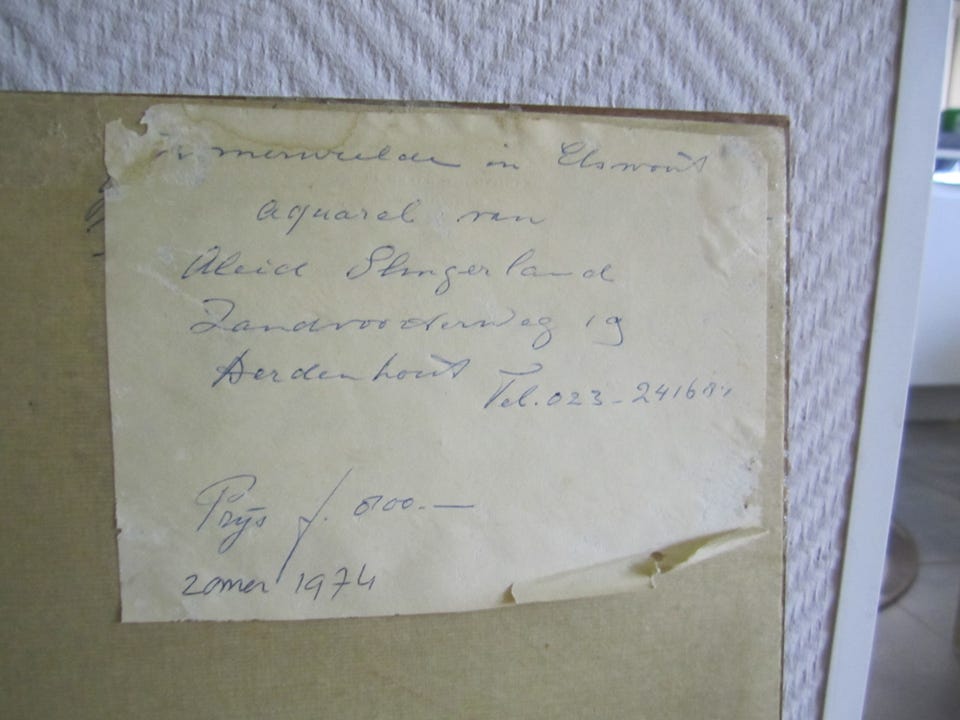 in Elswout
aquarel van
Aleid Slingerland
Zandvoorterweg 19
Aerdenhout
Tel. 023-2416
Prijs f. 800.—
zomer 1974